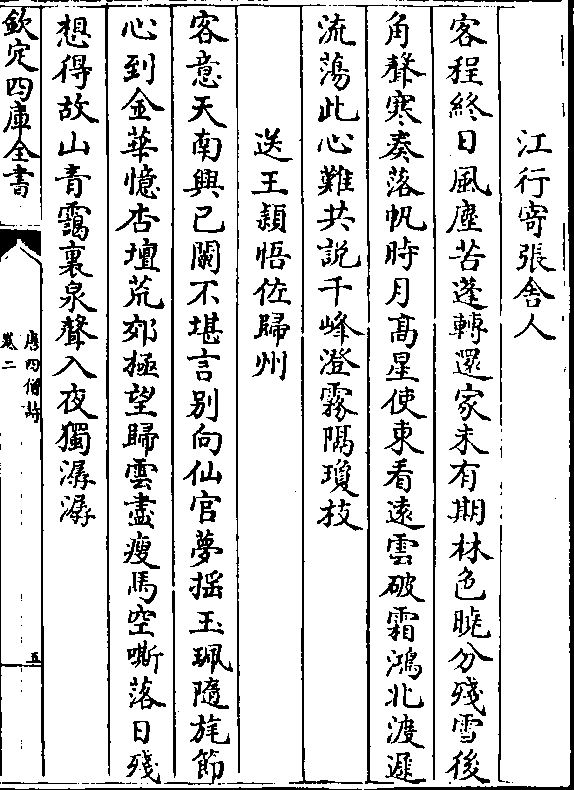 江行寄張舎人
客程終日風塵苦蓬轉還家未有期林色曉分殘雪後
角聲寒奏落帆時月髙星使東看逺雲破霜鴻北渡遲
流蕩此心難共説千峰澄霽隔瓊枝
送王頴悟佐歸州
客意天南興已闌不堪言别向仙官夢揺玉珮隨旄節
心到金華憶杏壇荒郊極望歸雲盡瘦馬空嘶落日殘
想得故山青靄裏泉聲入夜獨潺潺
欽定四庫全書
唐四僧詩
卷二
五